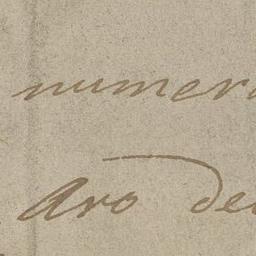 numer
Aro de